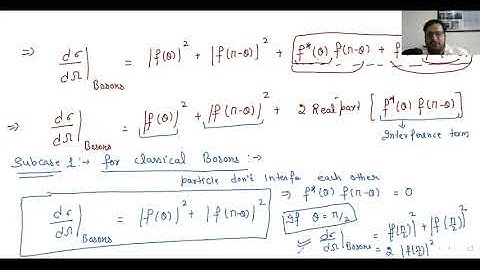 ⇒ dσ/dΩ|Bosons = |f(θ)|² + |f(π-θ)|² + f*(θ) f(π-θ) + f
⇒ dσ/dΩ|Bosons = |f(θ)|² + |f(π-θ)|² + 2 Real part [f*(θ) f(π-θ)]
Interference term
Subcase 1:→ for classical Bosons :→
particle don't interfe each other
dσ/dΩ|Bosons = |f(θ)|² + |f(π-θ)|² ⇒ f*(θ) f(π-θ) = 0
If θ = π/2
dσ/dΩ|Bosons = |f(π/2)|² + |f(π/2)|²
= 2 |f(π/2)|²